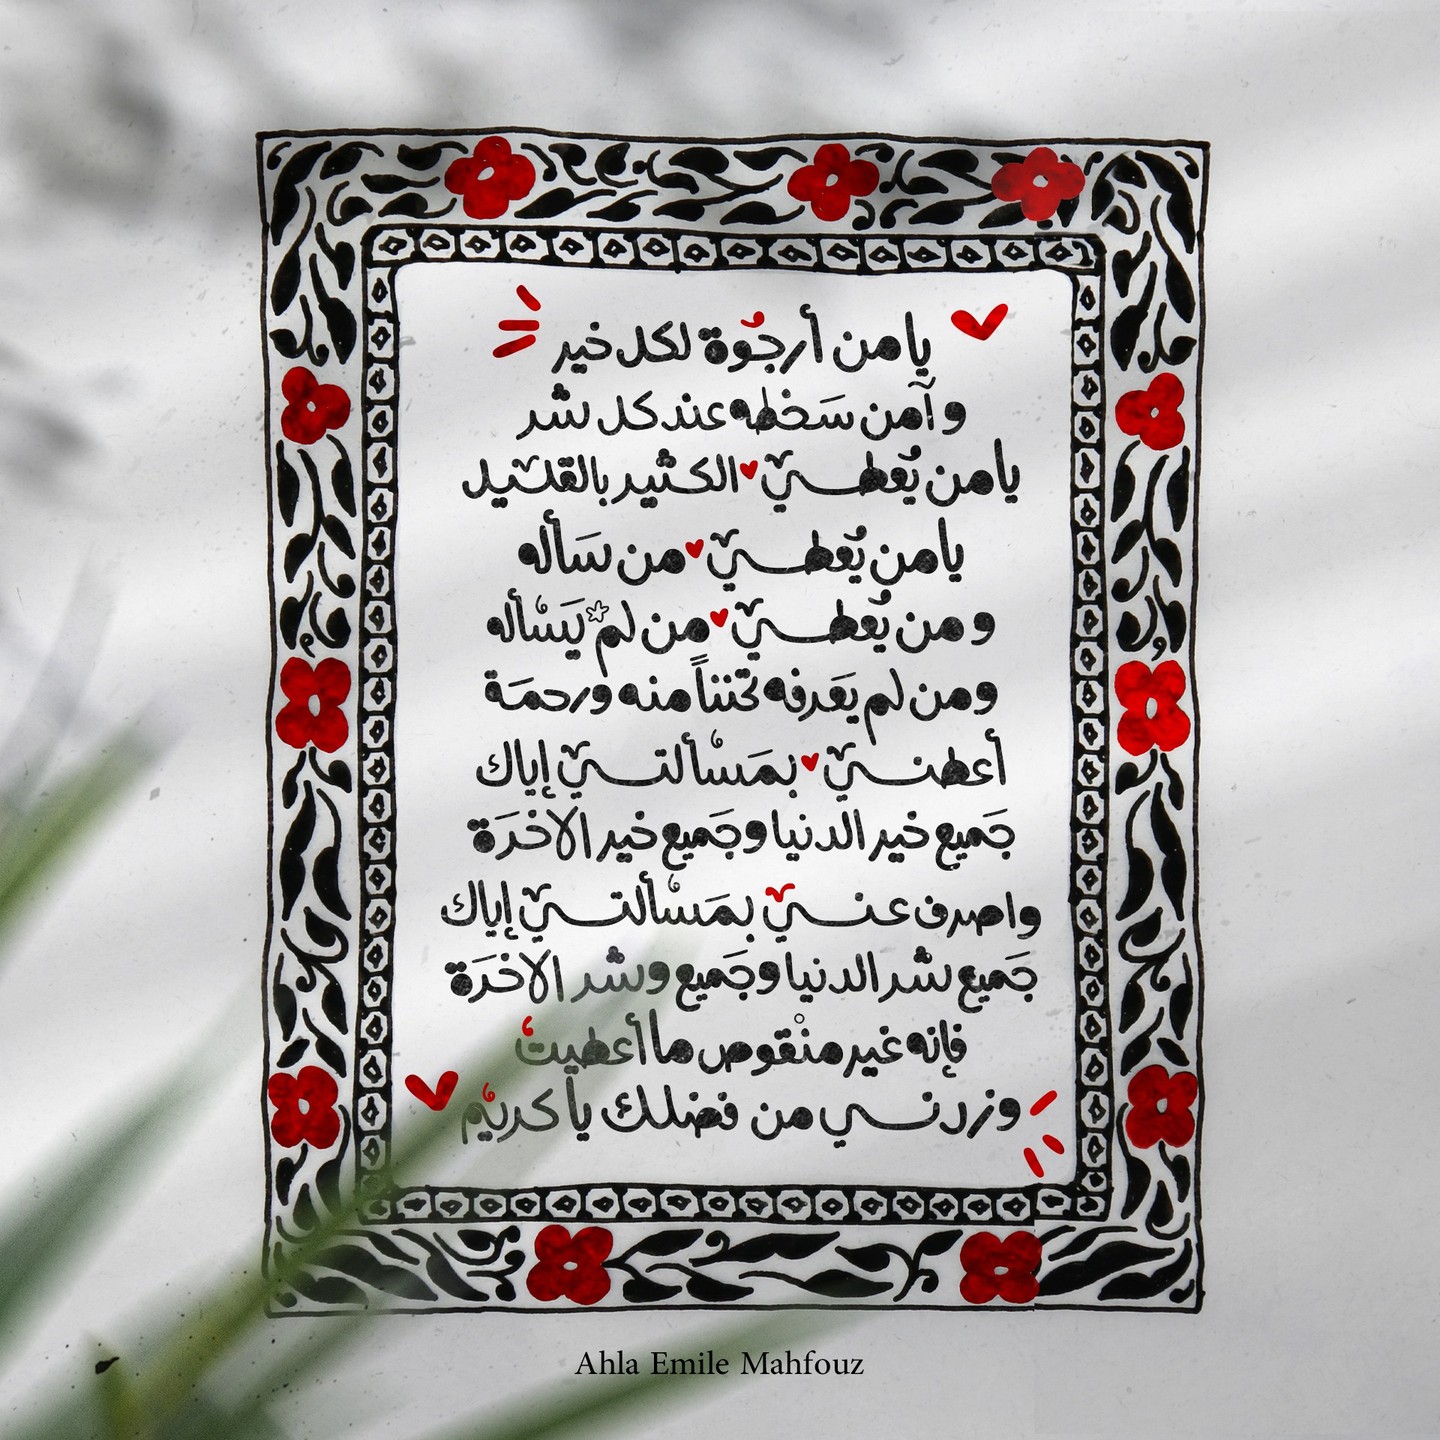 يا من أرجُوة لكل خير
و آمن سَخطه عند كل شر
يا من يُعطي الكثير بالقليل
يا من يُعطي من سَأله
و من يُعطي من لم يَسأله
ومن لم يَعَرفه تحنناً منه ورحمَة
أعطني بمَسألتي إياك
جَميع خير الدنيا وجَميع خير الاخرَة
واصرف عني بمَسألتي إياك
جَميع شر الدنيا وجَميع وشر الاخرَة
فإنه غير منْقوص ما أعطيت
وزدني من فضلك يا كريم
Ahla Emile Mahfouz